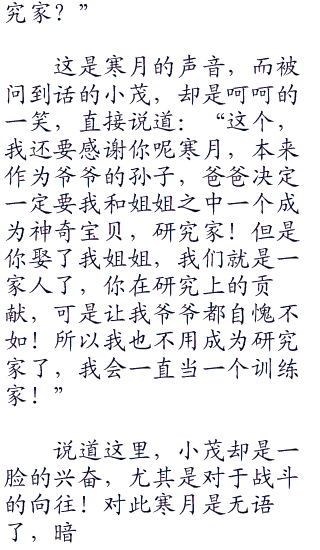 究家？”
这是寒月的声音，而被
问到话的小茂，却是呵呵的
一笑，直接说道：“这个，
我还要感谢你呢寒月，本来
作为爷爷的孙子，爸爸决定
一定要我和姐姐之中一个成
为神奇宝贝，研究家！但是
你娶了我姐姐，我们就是一
家人了，你在研究上的贡
献，可是让我爷爷都自愧不
如！所以我也不用成为研究
家了，我会一直当一个训练
家！”
说道这里，小茂却是一
脸的兴奋，尤其是对于战斗
的向往！对此寒月是无语
了，暗